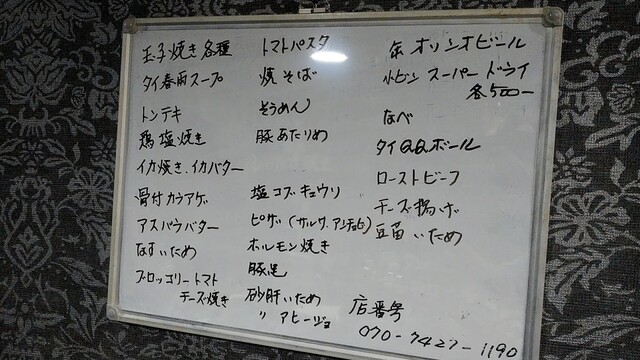 玉子焼き各種
タイ春雨スープ
トンテキ
鶏塩焼き
イカ焼き.イカバター
骨付カラアゲ
アスパラバター
なすいため
ブロッコリートマト
チーズ焼き
トマトパスタ
焼そば
そうめん
豚あたりめ
塩コブキュウリ
ピザ(サルサ.アンチョビ)
ホルモン焼き
豚足
砂肝いため
〃 アヒージョ
缶 オリオンビール
小ビン スーパードライ
各500ー
なべ
タイQQボール
ローストビーフ
チーズ揚げ
豆苗いため
店番号
070-7427-1190